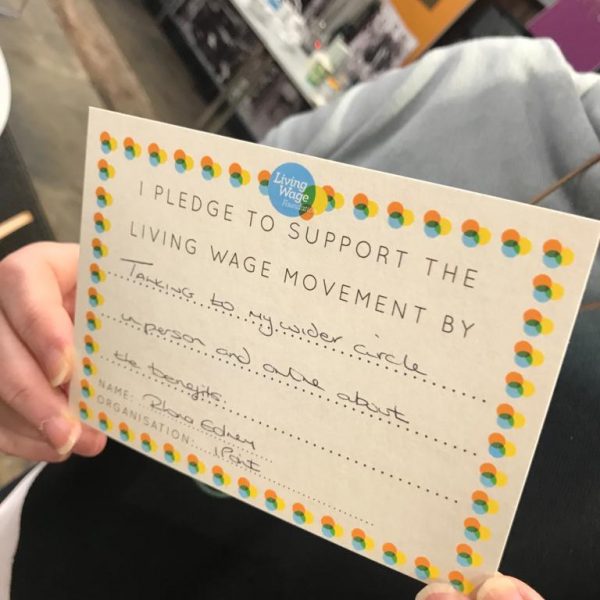 Living
Wage
Foundation
I PLEDGE TO SUPPORT THE
LIVING WAGE MOVEMENT BY
Talking to my wider circle
in person and online about
the benefits
NAME:
ORGANISATION: